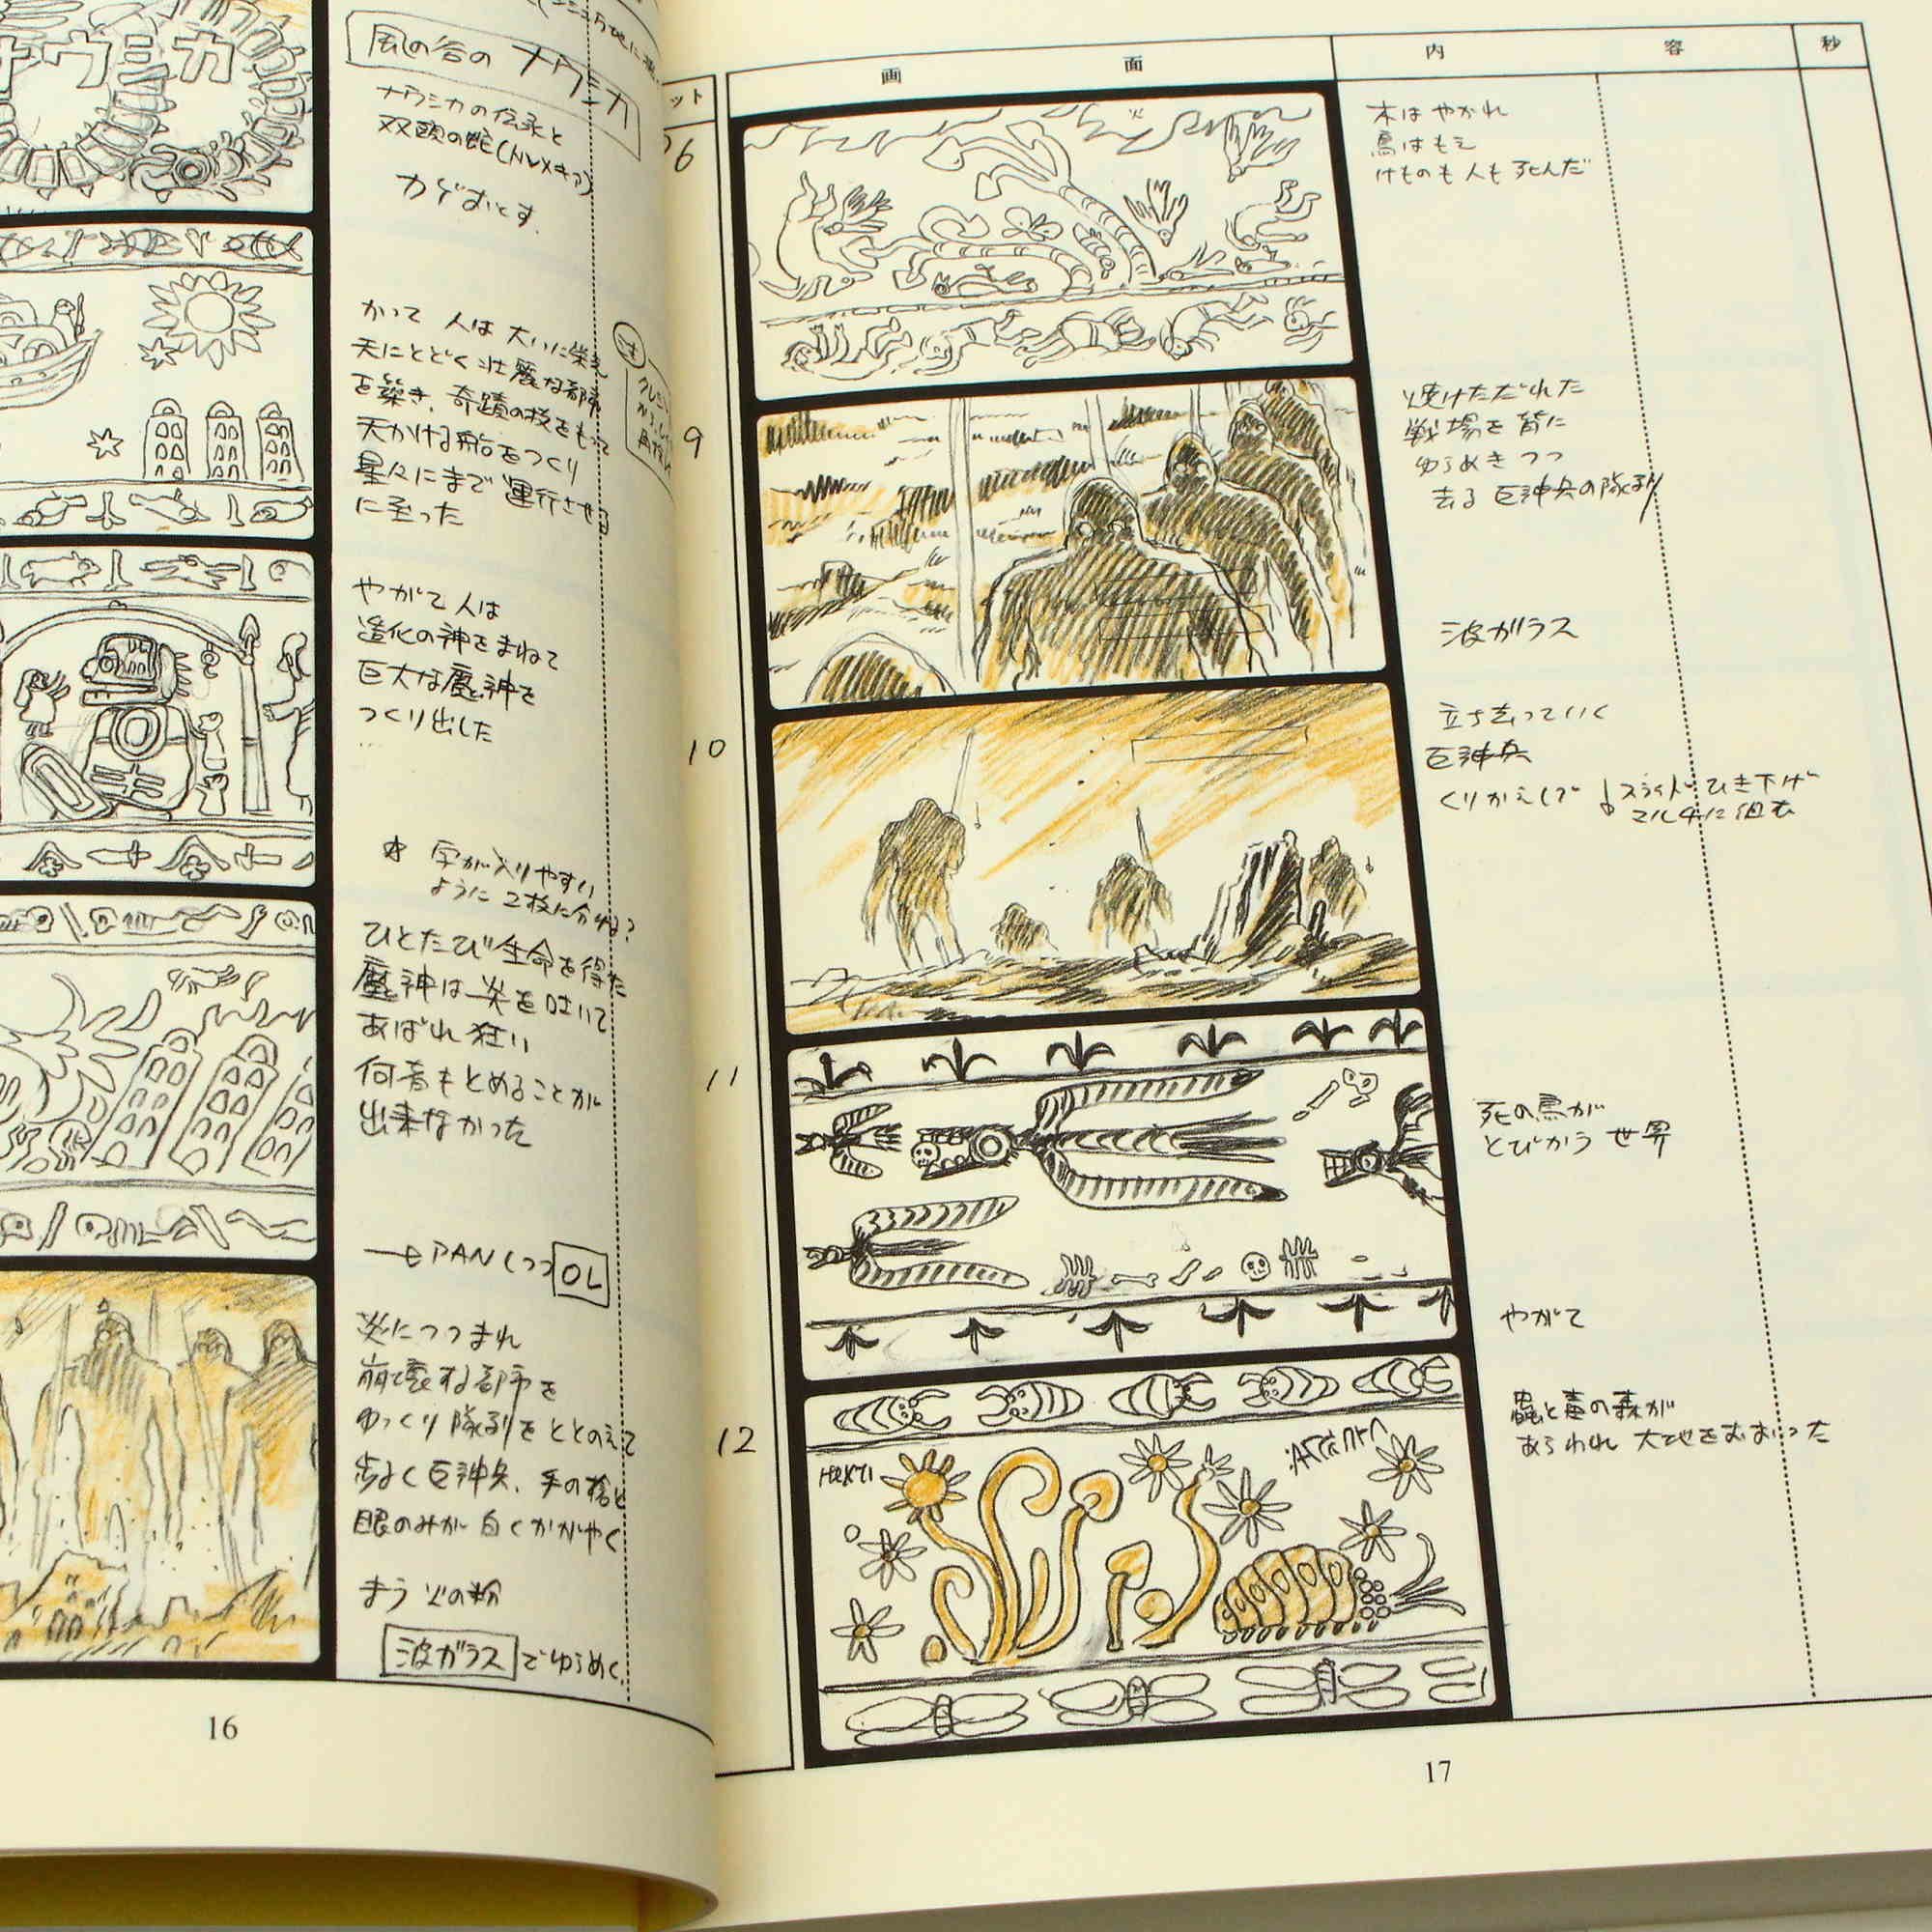 ナウシカ
風の谷の ナウシカ
ナウシカの伝承と
双頭の蛇
かつて 人は 大いに栄え
天にとどく壮麗な都市
を築き、奇蹟の技をもって
天かける船をつくり
星々にまで 運行させ
に至った
やがて人は
造化の神をまねて
巨大な魔神を
つくり出した
字が入りやすい
ように 2枚に分ける?
ひとたび生命を得た
魔神は 炎を吐いて
あばれ狂い
何者もとめることが
出来なかった
PAN しつつ OL
炎につつまれ
崩壊する都市を
ゆっくり 隊列を ととのえて
歩く巨神兵、手の槍と
眼のみが 白くかがやく
まう 火の粉
波ガラス でゆらめく
16
ット
画面
内容
秒
6
木は やがれ
鳥はもえ
けものも人も 死んだ
9
焼けただれた
戦場を背に
ゆらめきつつ
去る 巨神兵の隊列
波ガラス
10
立ち去っていく
巨神兵
くりかえしで スライド ひき下げ
マルチに組む
11
死の鳥が
とびかう 世界
やがて
12
蟲と毒の森が
あらわれ 大地をおおった
17